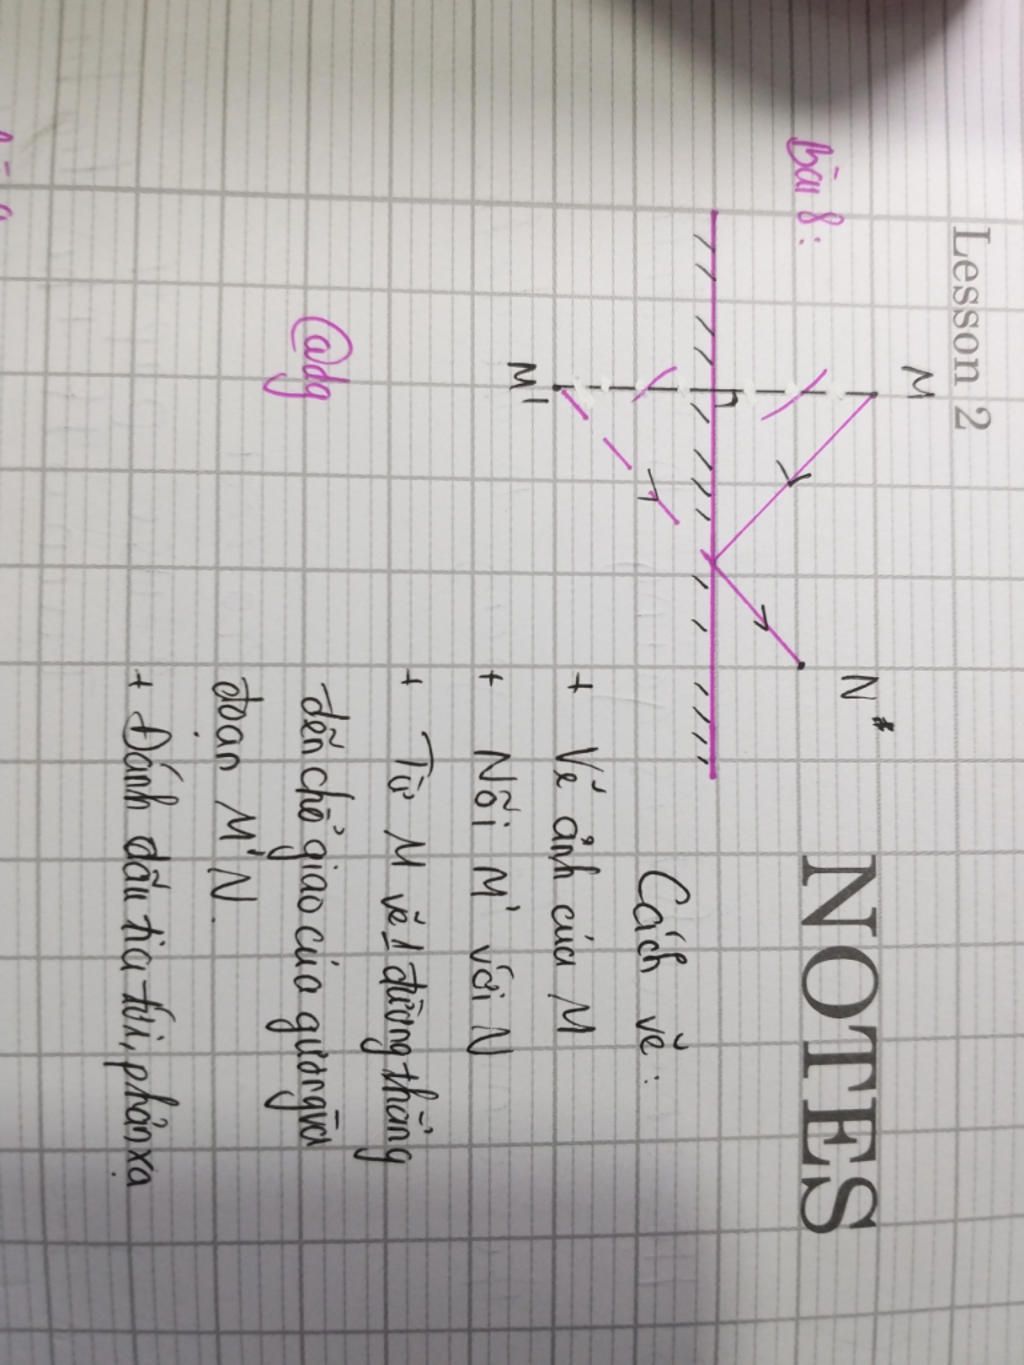 Lesson 2
NOTES
bài 8:
M
N
M'
@dg
Cách vẽ:
+ Vẽ ảnh của M
+ Nối M' với N
+ Từ M vẽ 1 đường thẳng
đến chỗ giao của gương và
đoạn M'N.
+ Đánh dấu tia tới, phản xạ